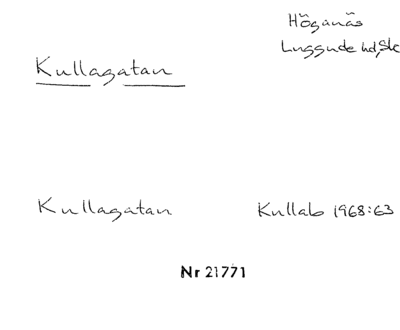 Höganäs
Luggude hd, Sk
Kullagatan
Kullagatan Kullab 1968:63
Nr 21771